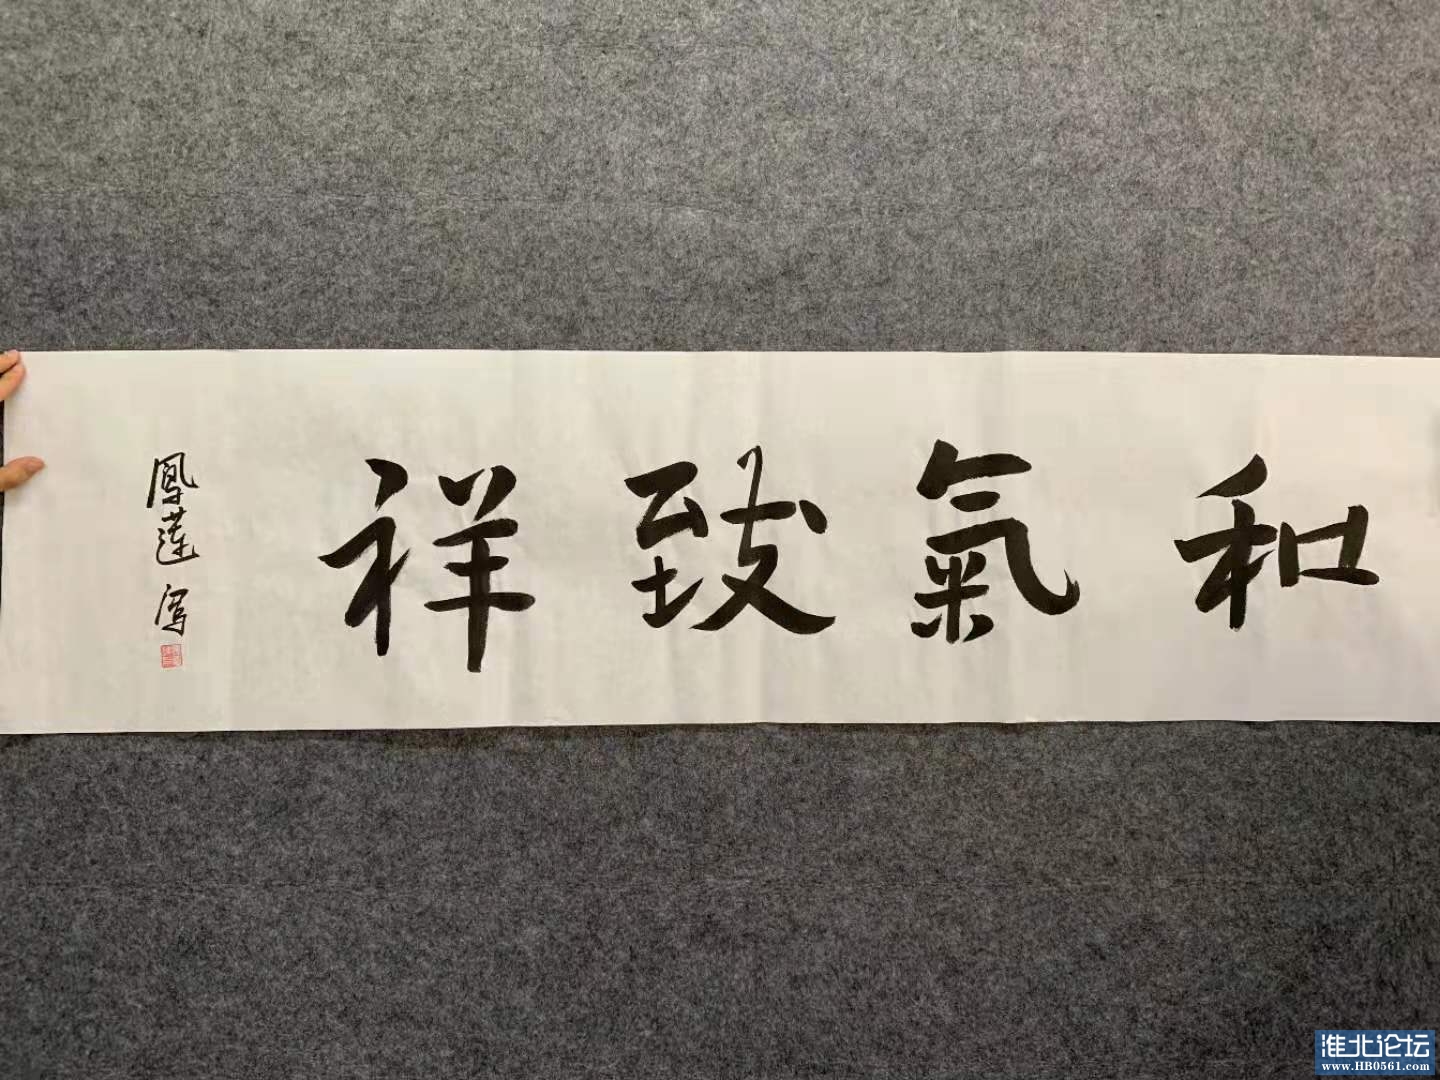 和氣致祥
鳳蓮寫
淮北论坛
www.HB0561.com